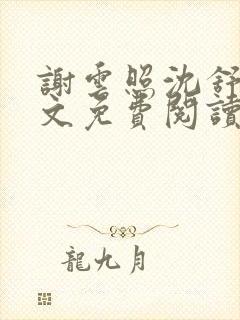 謝雲照沈舒
文免費閱讀
龍九月